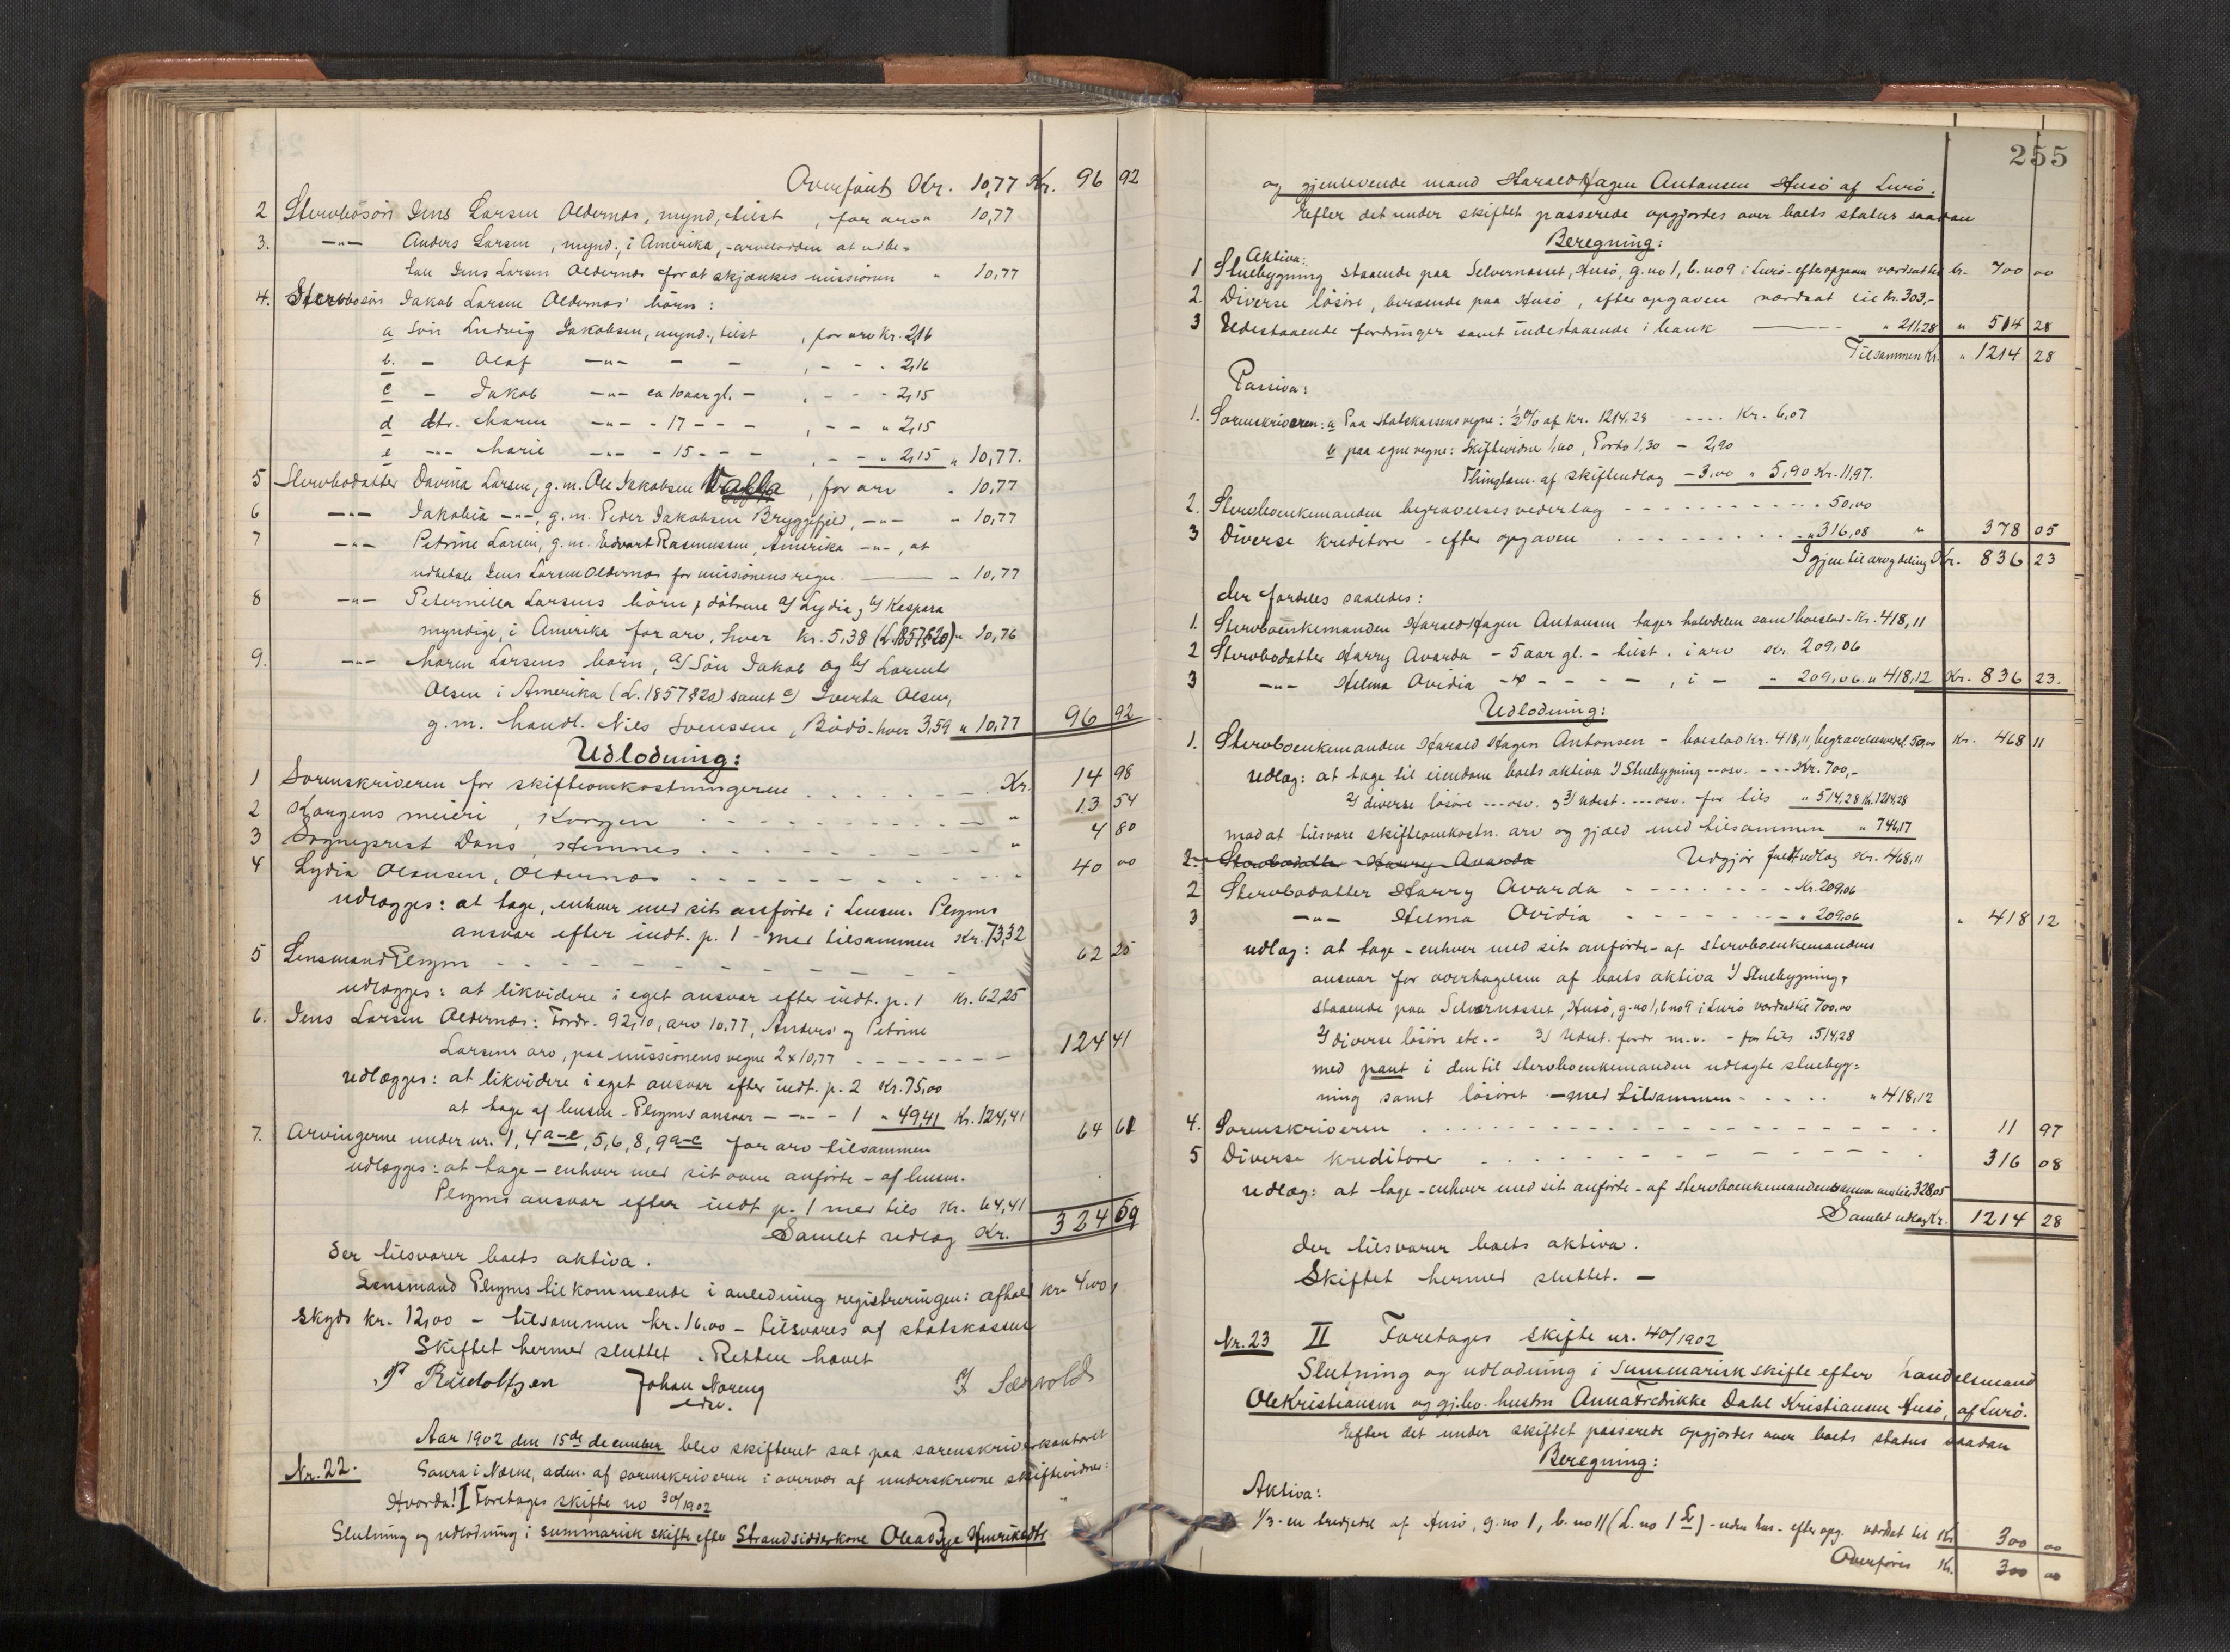 Overført Kr. 10,77 Kr. 96 92
2 Stervbosön Jens Larsen Oldernes, mynd, tilst , for arv " 10,77
3. —"— Anders Larsen, mynd., i Amerika, - arvelodden at udbe-
tale Jens Larsen Oldernes for at skjænkes missionen " 10,77
4. Stervbosöns Jakob Larsen Oldernes' börn:
a Sön Ludvig Jakobsen, mynd., tilst , for arv kr. 2,16
b. - Olaf —"— - - , - - - 2,16
c - Jakob —"— ca 10 aar gl. - , - - - 2,15
d dtr. Maren —"— - 17 - - - , - - " 2,15
e —"— Marie —"— - 15 - - - , - - " 2,15 " 10,77.
5 Stervbodatter Davina Larsen, g.m. Ole Jakobsen , for arv " 10,77
6 —"— Jakobia —"—, g.m. Peder Jakobsen Bryggfjeld, —"— " 10,77
7 —"— Petrine Larsen, g.m. Edvart Rasmussen, Amerika —"—, at
udbetale Jens Larsen Oldernes for missionens regn. —— " 10,77
8 —"— Peternilla Larsens börn, döttrene a/ Lydia, b/ Kaspara
myndige, i Amerika for arv, hver kr. 5,38 (L. 1857, § 20) " 10,76
9. —"— Maren Larsens börn, a/ Sön Jakob og b/ Laurents
Olsen i Amerika (L. 1857 § 20) samt c/ Iverta Olsen,
g.m. handl. Nils Svenssen, Bödö - hver 3,59 " 10,77 96 92
Udlodning:
1 Sorenskriveren for skifteomkostningerne . . . . . . Kr. 14 98
2 Korgens meieri, Korgen - - - - - - - - - " 13 54
3 Sogneprest Dons, Hemnes . . - - - - - - " 4 80
4 Lydia Olausen, Oldernes - - - - - - - - 40 00
udlægges: at tage, enhver med sit anförte i Lensm. Plesyms
ansvar efter indt. p. 1 - med tilsammen Kr. 73,32
5 Lensmand Plesym - - - - - - - - - - 62 25
udlægges: at likvidere i eget ansvar efter indt. p. 1 Kr. 62,25
6. Jens Larsen Oldernes: Fordr. 92,10, arv 10,77, Anders' og Petrine
Larsens arv, paa missionens vegne 2 x 10,77 - - - - - - - 124 41
udlægges: at likvidere i eget ansvar efter indt. p. 2 Kr. 75,00
at tage af lensm. Plesyms ansvar - —"— - 1 " 49,41 Kr. 124,41
7. Arvingerne under nr. 1, 4 a-e, 5, 6, 8, 9 a-c for arv tilsammen 64 61
udlægges: at tage - enhver med sit oven anförte - af lensm.
Plesyms ansvar efter indt p. 1 med tils Kr. 64,41
Samlet udlæg Kr. 324 59
der tilsvarer boets aktiva.
Lensmand Plesyms tilkommende i anledning registreringen: afhold kr. 4,00,
skyds kr. 12,00 - tilsammen kr. 16,00 - tilsvares af statskassen
Skiftet hermed sluttet. Retten hævet
P Rudolfsen Johan Noreng edsv.
Aar 1902 den 15de december blev skifteret sat paa sorenskriverkontoret
Nr. 22. Saura i Nesne, adm. af sorenskriveren i overvær af underskrevne skiftevidner:
Hvorda! I Foretages skifte no 30/1902
Slutning og udlodning i summarisk skifte efter Strandsidderkone Olea
255
og gjenlevende mand Harald Hagen Antonsen Husö af Lurö.
Efter det under skiftet passerede opgjordes over boets status saadan
Beregning:
Aktiva:
1 Stuebygning staaende paa Selvernesset, Husö, g.no 1, b.no 9 i Lurö - efter opgaven værdsat til kr. 700 00
2. Diverse lösöre, beroende paa Husö, efter opgaven værdsat til kr. 303,-
3 Udestaaende fordringer samt indestaaende i bank —— " 211,28 " 514 28
Tilsammen Kr. " 1214 28
Passiva:
1. Sorenskriveren: a Paa Statskassens vegne: ½ % af kr. 1214,28 ---- Kr. 6,07
b paa egne vegne: Skiftevidne 1,60, Porto 1,30 - 2,90
Thinglæsn. af skifteudlæg - 3,00 " 5,90 Kr. 11,97.
2. Stervboenkemanden begravelsesvederlag - - - - - - - - - - . 50,00
3 Diverse kreditorer - efter opgaven . . . . . . . . " 316,08 " 378 05
Igjen til arv og deling Kr. 836 23
der fordeles saaledes:
1. Stervboenkemanden Harald Hagen Antonsen tager halvdelen som boeslod - Kr. 418,11
2 Stervbodatter Harry Avarda - 5 aar gl. - tilst. i arv Kr. 209,06
3 —"— Helma Ovidia - 4 - - - - , i - " 209,06 " 418,12 Kr. 836 23.
Udlodning:
1. Stervboenkemanden Harald Hagen Antonsen - boeslod Kr. 418,11, begravelsesved. 50,00 Kr. 468 11
udlæg: at tage til eiendom boets aktiva 1/ Stuebygning --osv. - - - Kr. 700,-
2/ diverse lösöre ---osv. 3/ Udest. ---osv. for tils " 514,28 Kr. 1214,28
mod at tilsvare skifteomkostn. arv og gjæld med tilsammen " 746,17
2. Stervbodatter Harry Avarda Udgjör fuldt udlæg Kr. 468,11
2 Stervbodatter Harry Avarda - - - - - - - - Kr. 209,06
3 —"— Helma Ovidia - - - - - - - - " 209,06 " 418 12
udlæg: at tage - enhver med sit anförte - af stervboenkemandens
ansvar for overtagelsen af boets aktiva 1/ Stuebygning,
staaende paa Selvernesset, Husö, g.no 1, b.no 9 i Lurö værdsat til 700,00
2/ diverse lösöre etc. - 3/ Udest. fordr m.v. - for tils . 514,28
med pant i den til stervboenkemanden udlagte stuebyg-
ning samt lösöret - med tilsammen - . . . . " 418,12
4. Sorenskriveren . . . . . . . . . . . . . . 11 97
5 Diverse kreditorer - . . . - - - - - - - 316 08
udlæg: at tage - enhver med sit anförte - af stervboenkemandens ansvar med tils 328,05
Samlet udlæg Kr. 1214 28
der tilsvarer boets aktiva.
Skiftet hermed sluttet. —
Nr. 23 II Foretages skifte nr. 40/1902
Slutning og udlodning i summarisk skifte efter handelsmand
Ole Kristiansen og gj.lev. hustru Anna Fredrikke Dahl Kristiansen Husö, af Lurö.
Efter det under skiftet passerede opgjordes over boets status saadan
Beregning:
Aktiva:
1/3 - en tredjedel af Husö, g.no 1, b.no 11 (L. no 1 ) - uden hus - efter opg. værdsat til Kr 300 00
Overføres Kr. 300 00